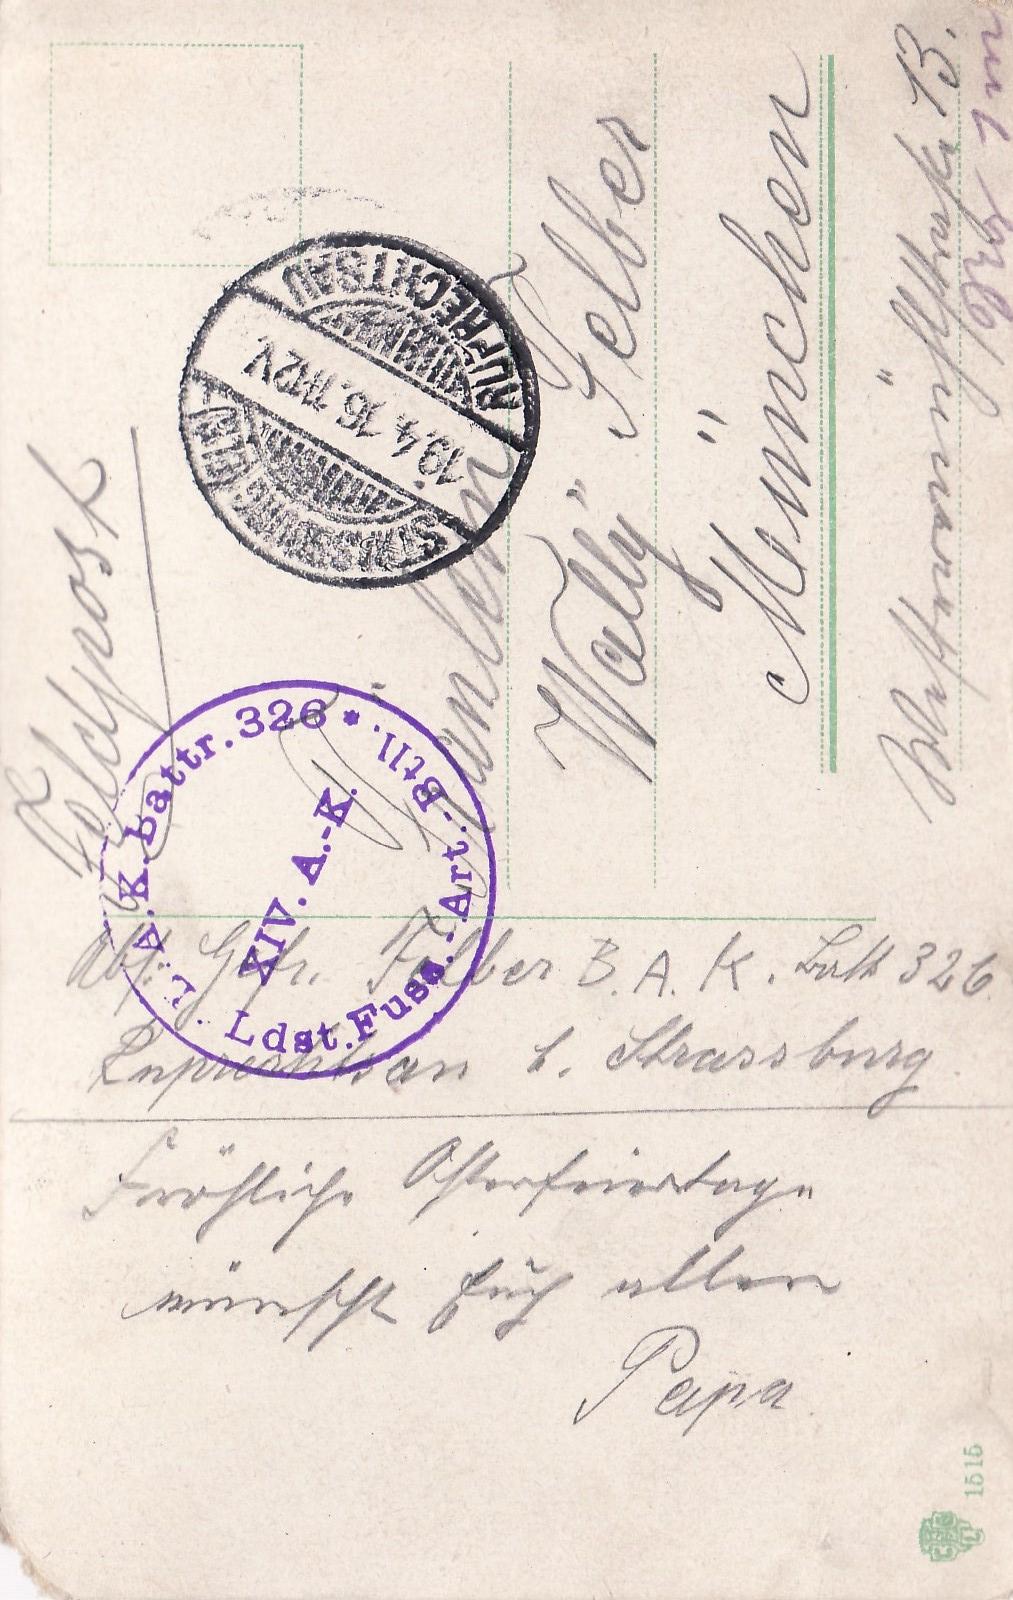 Feldpost
Fräulein
Wally Felber
München
13.
STRASSBURG (ELS.)
19.4.16. 11-12V.
RUPRECHTSAU
B.A.K. battr. 326 *
II. Ldst. Fuss.-Art.-Btll.
XIV. A.-K.
Abs. Gefr. Felber B.A.K. Batt 326.
Ruprechtsau b. Strassburg.
Fröhliche Osterfeiertage
wünscht Euch allen
Papa
1515